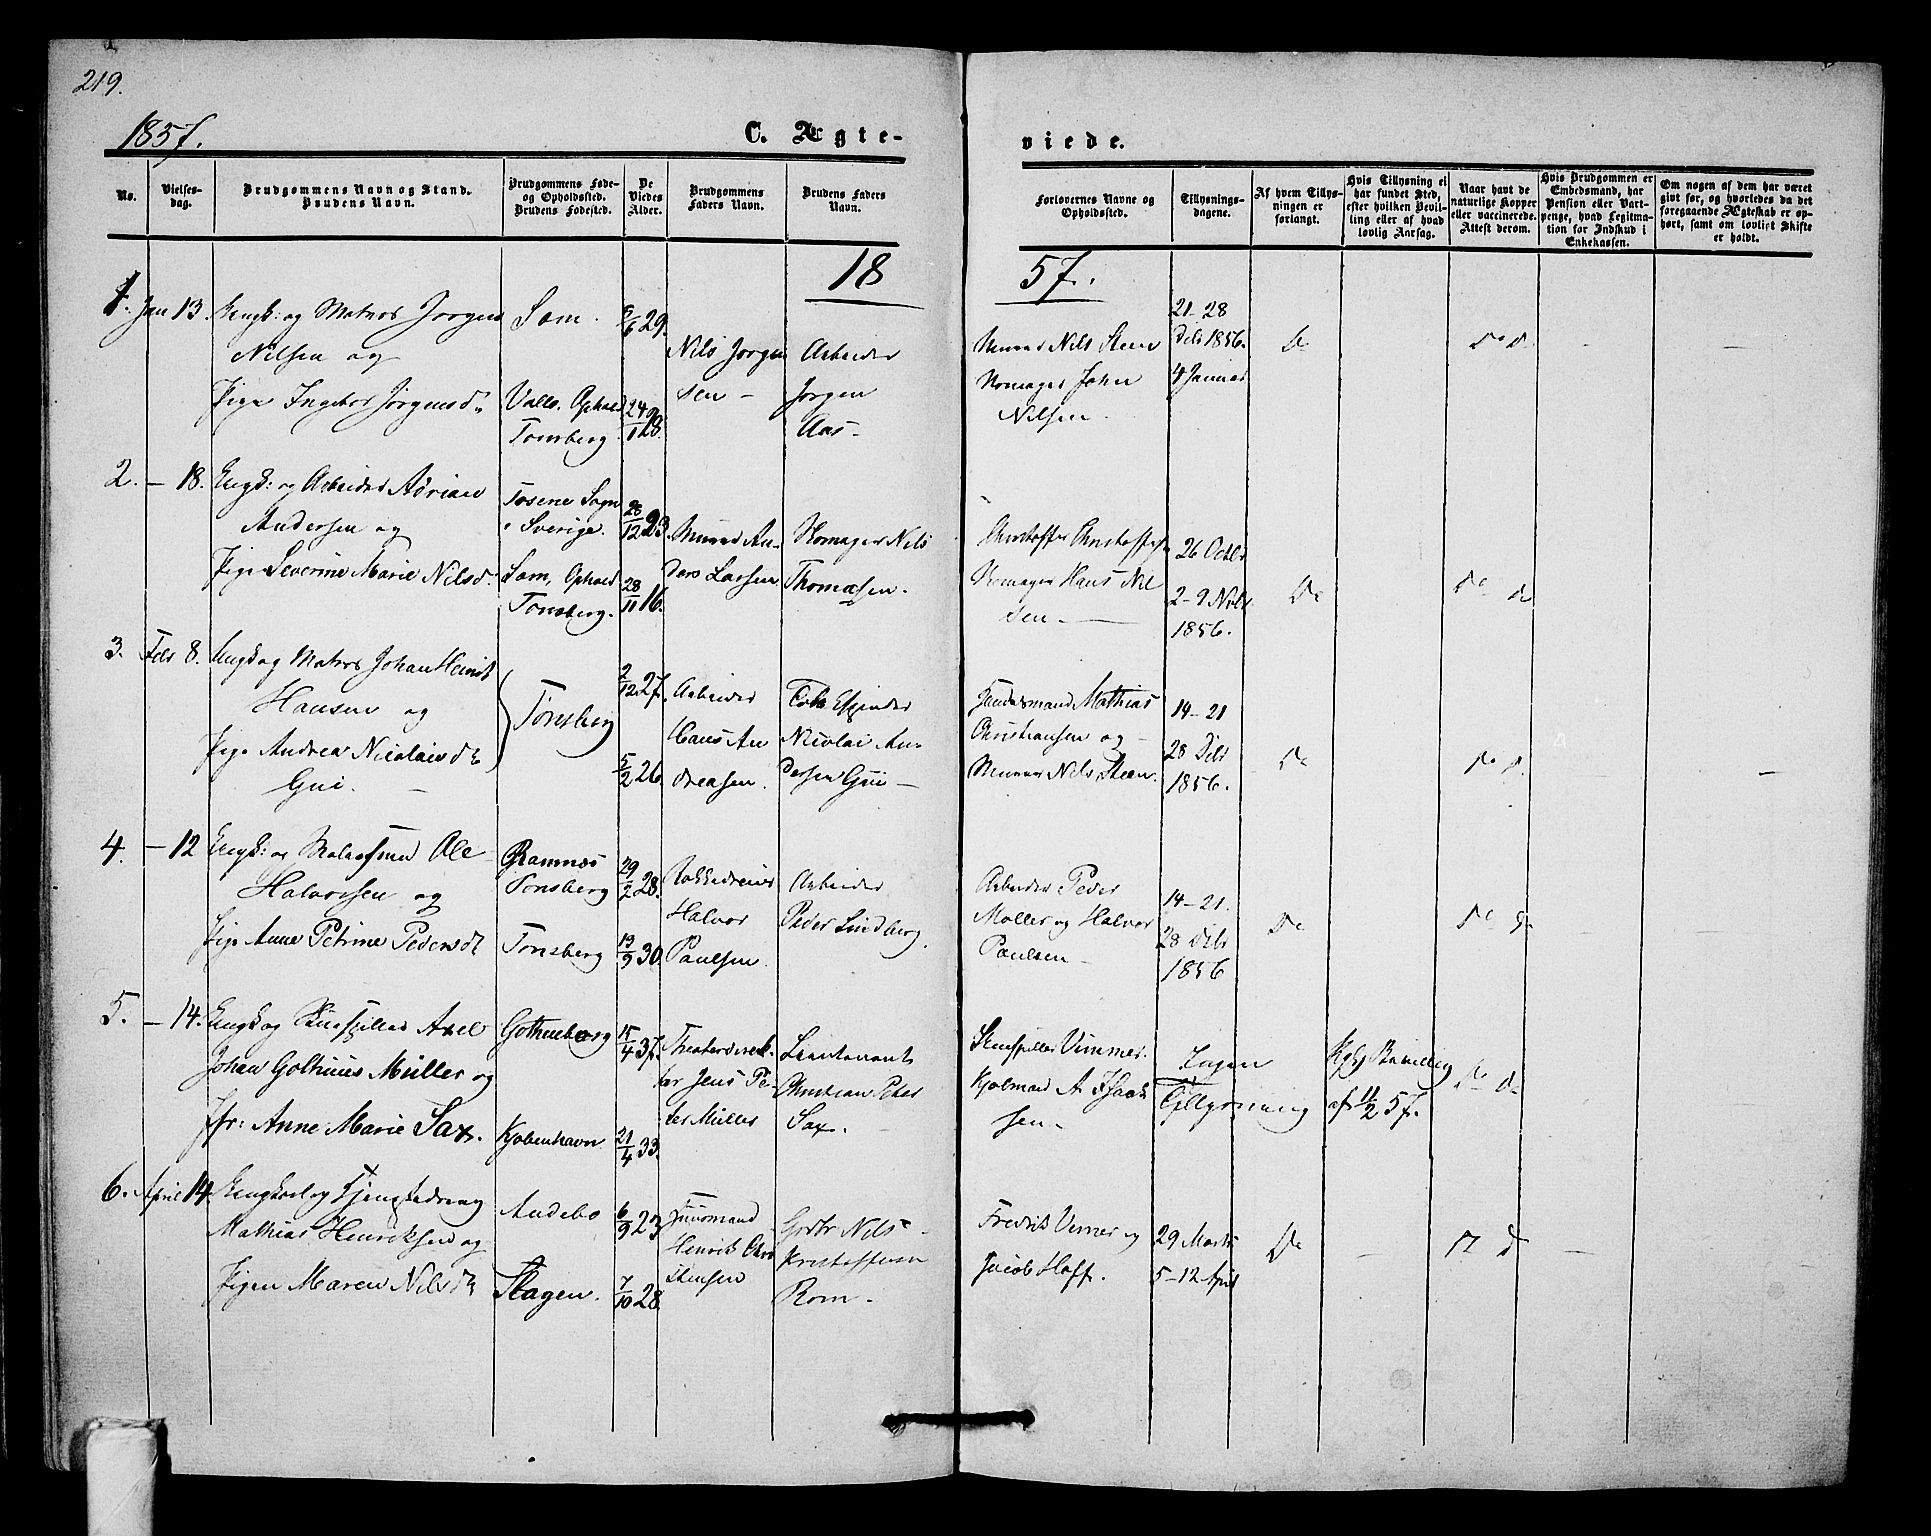 219.
1857.
C. Ægte-
viede.
No.
Vielses-
dag.
Brudgommens Navn og Stand.
Brudens Navn.
Brudgommens Føde-
og Opholdssted.
Brudens Fødested.
De
Viedes
Alder.
Brudgommens
Faders Navn.
Brudens Faders
Navn.
Forlovernes Navne og
Opholdssted.
Tillysnings-
dagene.
Af hvem Tillys-
ningen er
forlangt.
Hvis Tillysning ei
har fundet Sted,
efter hvilken Bevil-
ling eller af hvad
lovlig Aarsag.
Naar havt de
naturlige Kopper
eller vaccinerede.
Attest derom.
Hvis Brudgommen er
Embedsmand, har
Pension eller Vart-
penge, hvad Legitima-
tion for Indskud i
Enkekassen.
Om nogen af dem har været
gift før, og hvorledes da det
foregaaende Ægteskab er op-
hørt, samt om lovligt Skifte
er holdt.
18
57.
1. Jan 13. Ungk: og Matros Jørgen
Nilsen og
Pige Ingebor Jørgensd.
Sem.
Vallø. Ophold
Tønsberg.
29.
24/11 28.
Nils Jørgen
sen -
Arbeider
Jørgen
Aas-
Murer Nils Steen
Homager John
Nilsen.
21-28
Dcbr 1856.
4 Januar
Do
Do d.
2. - 18. Ungk: og Arbeider Adrian
Andersen og
Pige Severine Marie Nilsd
Tosene Sogn
i Sverige.
Sem, Ophold
Tønsberg.
28/12 23
28/11 16.
Murer An-
ders Larsen
Homager Nils
Thomasen.
Christoffer Christoffersen
Homager Hans Nil
sen -
26 Octbr
2-9 Nvbr
1856.
Do
Do do
3. Febr 8. Ungk og Matros Johan Henrik
Hansen og
Pige Andrea Nicolaisdtr
Gui. -
Tønsberg
2/12 27.
5/2 26.
Arbeider
Hans An
dreasen.
Nicolai An-
dersen Gui -
Mathias
Christiansen og -
Murer Nils Steen.
14-21
28 Dcbr
1856.
Do
Do d.
4. - 12 Ungk: og Ole
Halvorsen og
Pige Anne Petrine Pedersdt
Ramnæs
Tønsberg
Tønsberg
29/2 28.
19/9 30.
Rokkedreier
Halvor
Paulsen.
Arbeider
Peder Lindberg.
Arbeider Peder
Møller og Halvor
Paulsen -
14-21.
28 Dcbr
1856
Do
Do do
5. - 14. Ungk og Skuespiller Axel
Johan Gothnius Müller og
Jfr: Anne Marie Sax.
Gothneborg
Kjøbenhavn
15/4 37.
21/4 33
Theaterdirek-
tør Jens Pe-
ter Müller
Lieutenant
Christian Peter
Sax.
Skuespiller Vimmer.
Kjøbmand A. Isaak
sen -
Ingen
Tillysning
Kgl Bevilling
af 11/2 57.
Do do
6. April 14. Ungkarl og Tjenestedreng
Mathias Henriksen og
Pigen Maren Nilsdtr
Andebo
Slagen.
6/9 23
7/10 28
Huusmand
Henrik Chri
stensen
Grdbr Nils
Kristoffersen
Rom -
Fredrik Verner og
Jacob Hoff.
29 Marts
5-12 April
Do